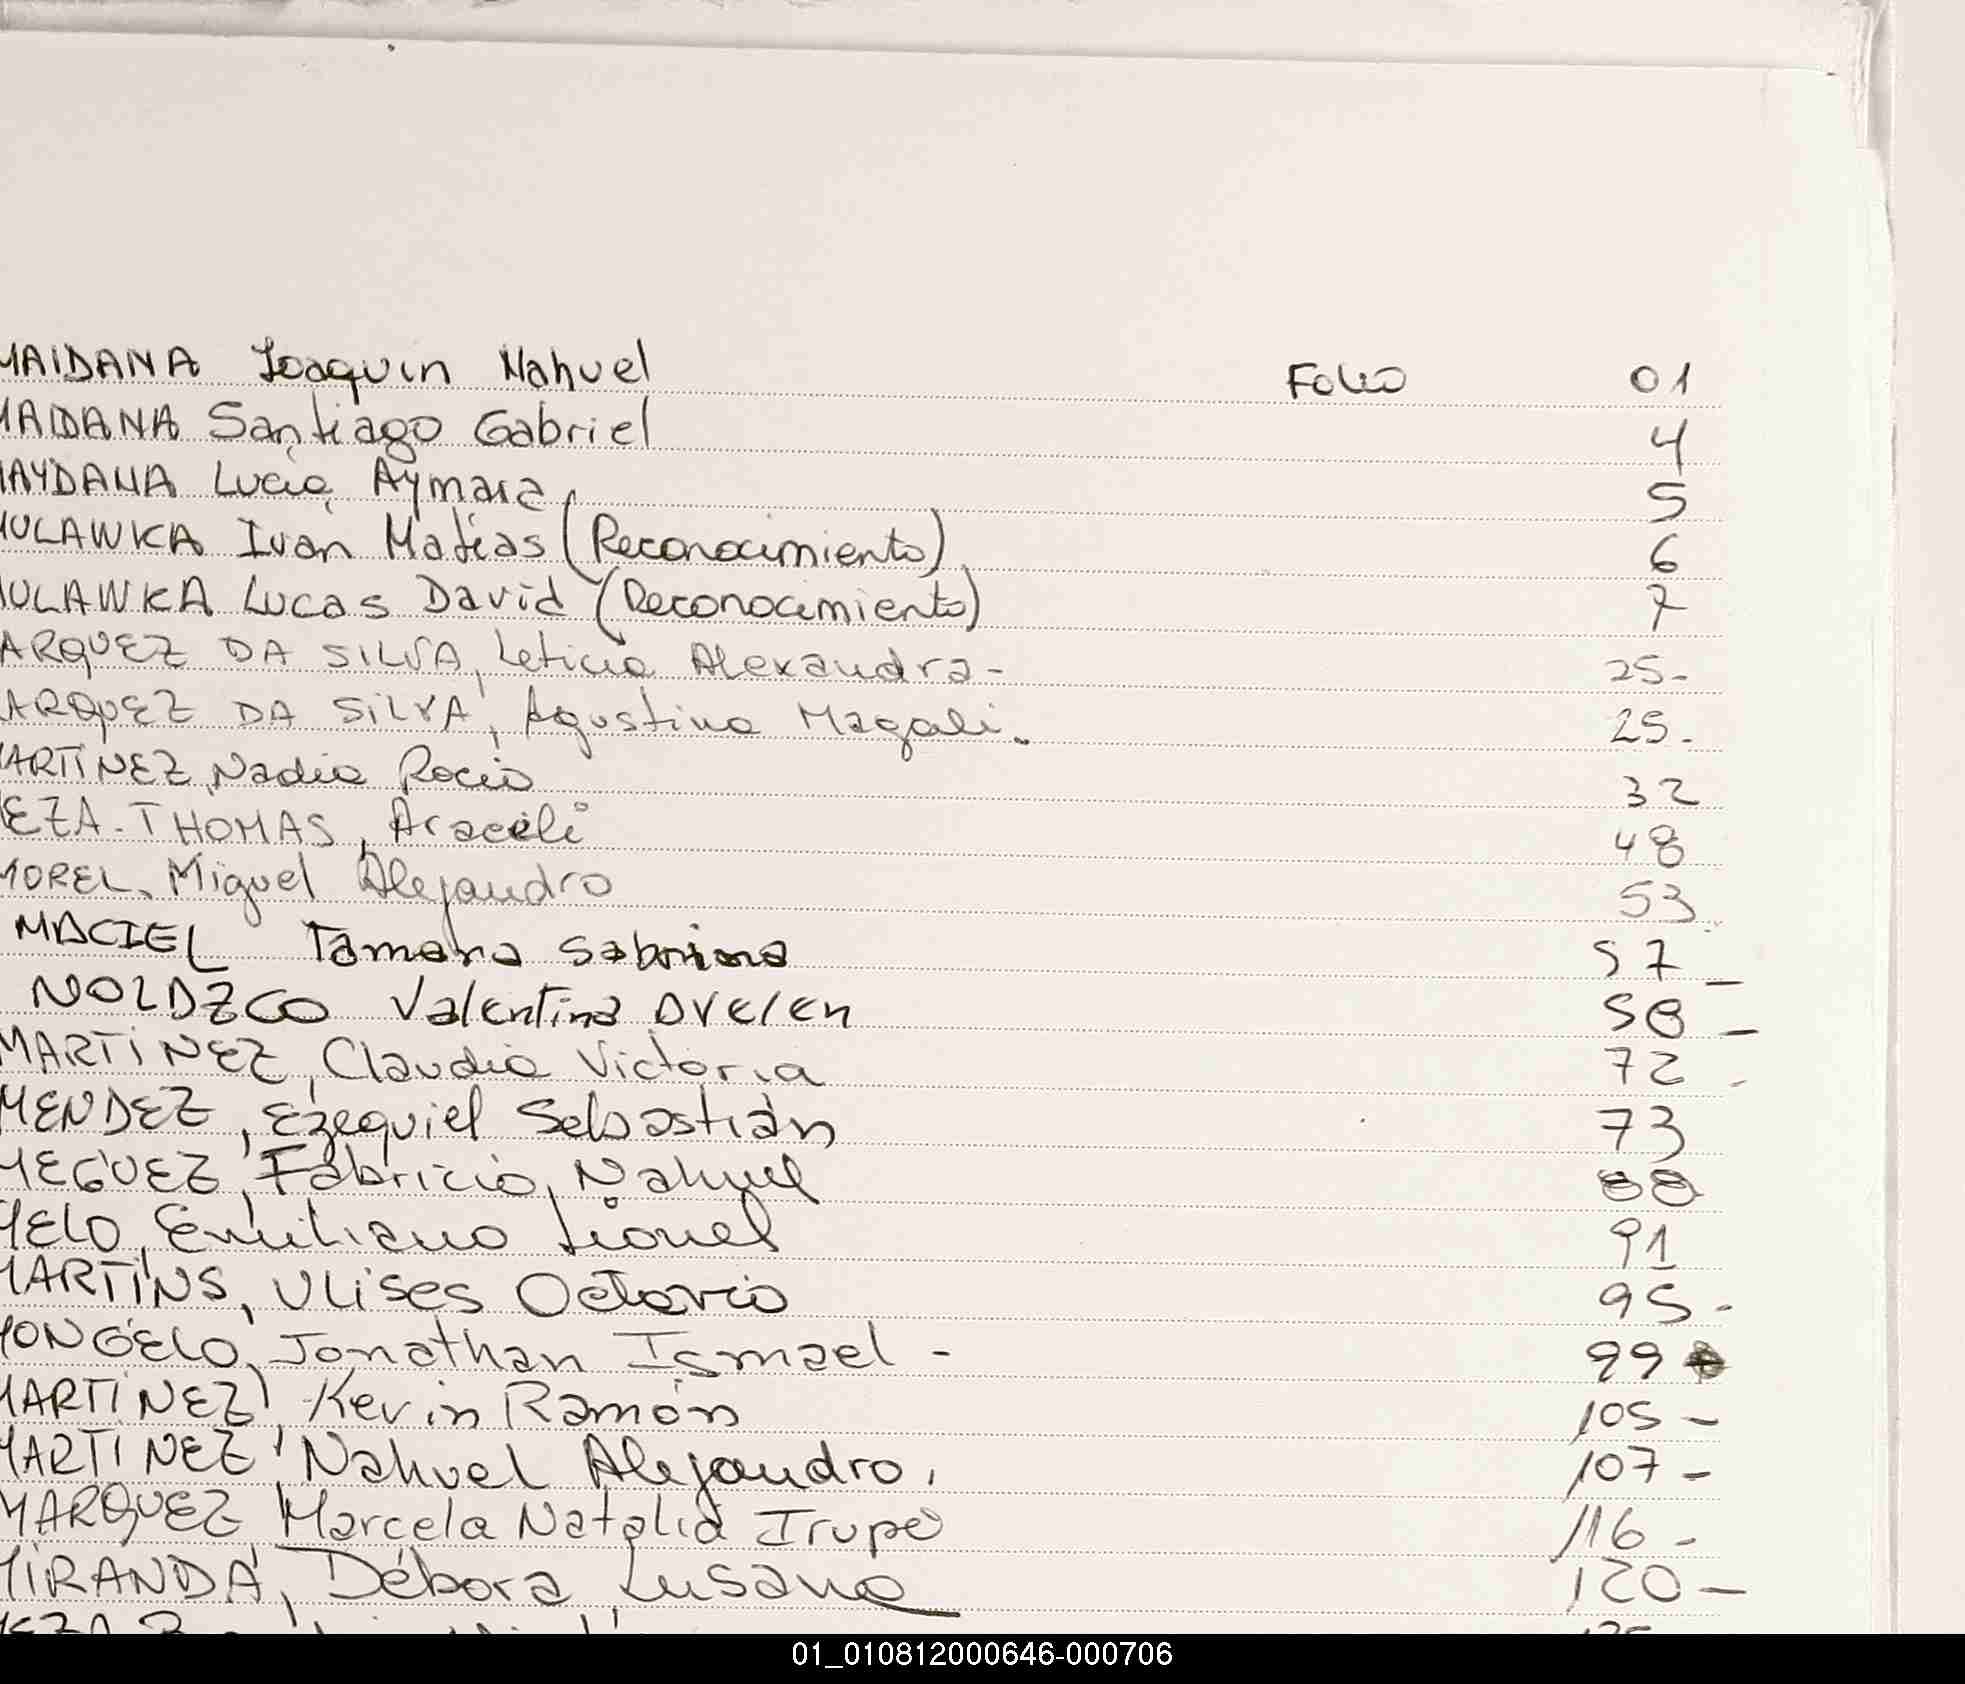 MAIDANA Joaquin Nahuel Folio 01
MAIDANA Santiago Gabriel 4
MAYDANA Lucia Aymara 5
MULAWKA Iván Matías (Reconocimiento) 6
MULAWKA Lucas David (Reconocimiento) 7
ARQUEZ DA SILVA, Leticia Alexandra- 25-
ARQUEZ DA SILVA, Agustina Magali. 25.
MARTINEZ, Nadia Rocío 32
EZA-THOMAS, Araceli 48
MOREL, Miguel Alejandro 53
MACIEL Tamara Sabrina 57 _
Valentina 58 _
MARTINEZ, Claudia Victoria 72 -
MENDEZ, Ezequiel Sebastián 73
MEGUEZ, Fabricio, Nahuel 88
MELO, Emiliano Lionel 91
MARTINS, Ulises Octavio 95-
MONGELO, Jonathan Ismael - 99
MARTINEZ, Kevin Ramón 105-
MARTINEZ, Nahuel Alejandro. 107-
MARQUEZ, Marcela Natalia Irupe 116-
MIRANDA, Débora Lusana 120-
01_010812000646-000706